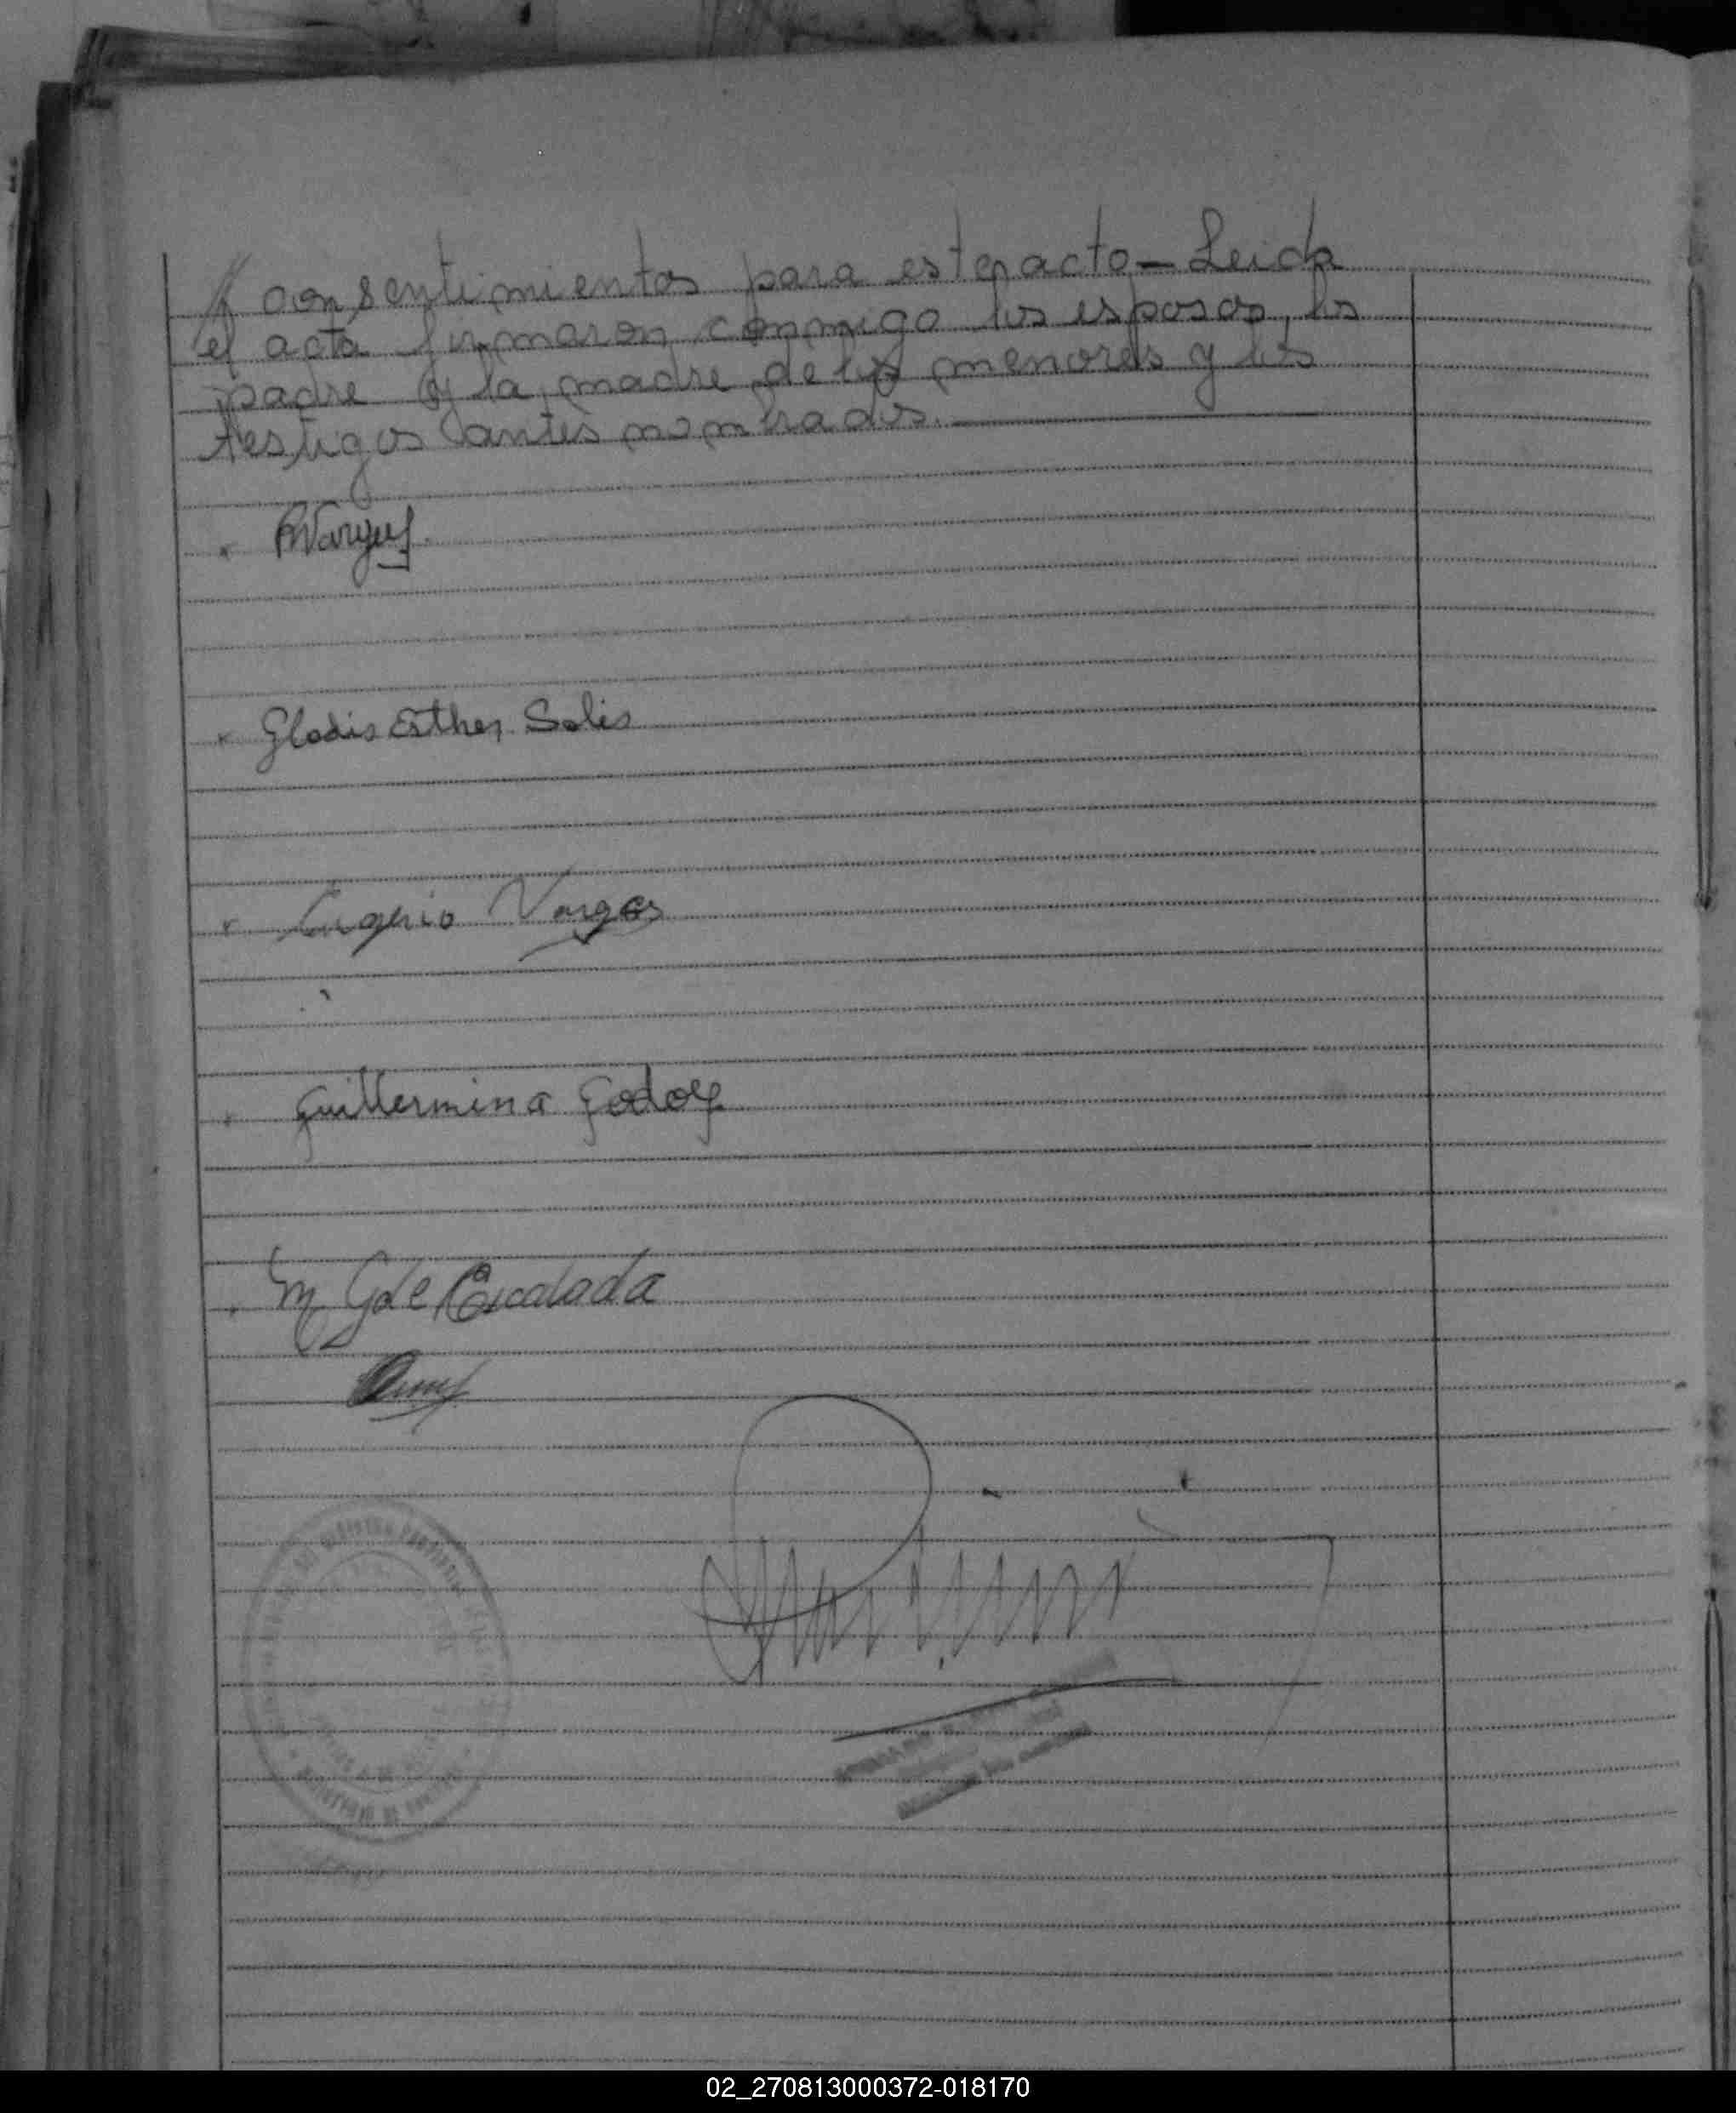 consentimientos para este acto — Leida
el acta firmaron conmigo los esposos, los
padre y la madre de los menores y los
testigos antes nombrados.
Vargas
Gladis Esther Solis
Eugenio Vargas
Guillermina Godoy
M G de Escalada
02_270813000372-018170